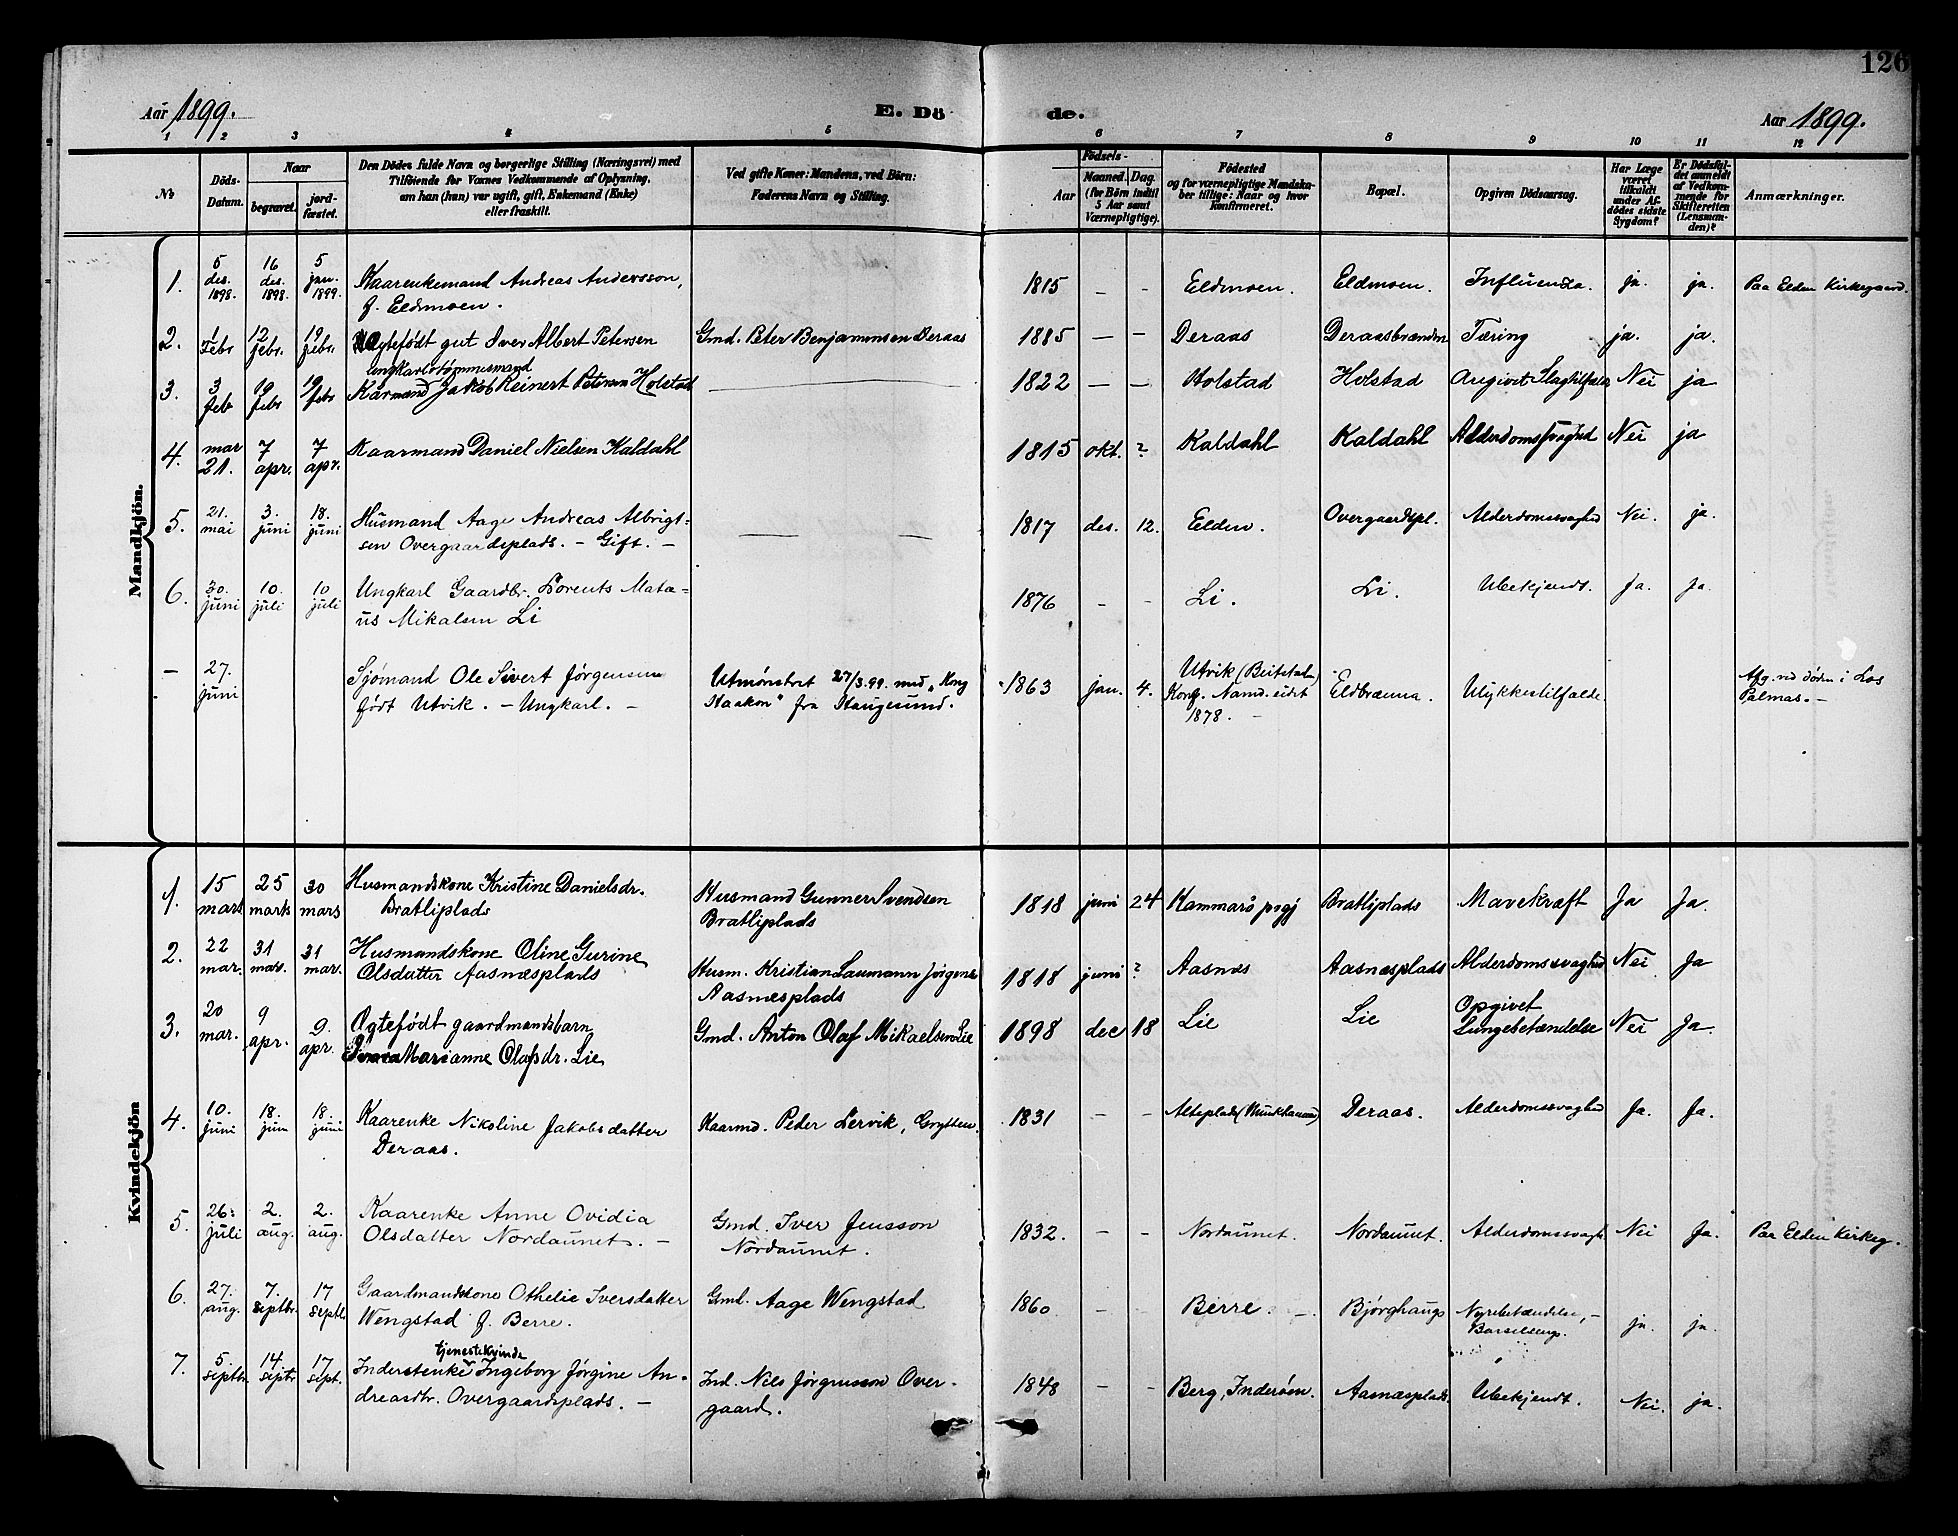 126
Aar 1899. E. Dö de. Aar 1899.
1 2 3 4 5 6 7 8 9 10 11 12
№
Döds-
Datum.
Naar
begravet.
jord-
fæstet.
Den Dödes fulde Navn og borgerlige Stilling (Næringsvei) med
Tilföiende for Voxnes Vedkommende af Oplysning,
om han (hun) var ugift, gift, Enkemand (Enke)
eller fraskilt.
Ved gifte Koner: Mandens, ved Börn:
Faderens Navn og Stilling.
Födsels-
Aar
Maaned. Dag.
(for Börn indtil
5 Aar samt
Værnepligtige).
Födested
og for værnepligtige Mandska-
ber tillige: Naar og hvor
konfirmeret.
Bopæl.
Opgiven Dödsaarsag.
Har Læge
været
tilkaldt
under Af-
dödes sidste
Sygdom?
Er Dödsfal-
det anmeldt
af Vedkom-
mende for
Skifteretten
(Lensman-
den)?
Anmærkninger.
Mandkjön.
1. 5 des. 1898. 16 des. 1898. 5 jan. 1899. Kaarenkemand Andreas Andersson, 1815 — — Eldmoen. Eldmoen. Influenza. ja. ja. Paa Elden Kirkegaard.
f. Eldmoen.
2. 1 Febr 12 febr. 19 febr. Ægtefödt gut Iver Albert Petersen Gmd. Peter Benjaminsen Deraas 1885 — — Deraas Deraasbrænden Tæring ja. ja.
3. 3 feb 19 febr 19 febr ungkarl
Kårmand Jakob Reinert Petersen Holstad 1822 — — Holstad Holstad Angivet Slagtilfælde Nei ja
4. mar 21. 7 apr. 7 apr. Kaarmand Daniel Nielsen Kaldahl 1815 okt. ? Kaldahl Kaldahl Alderdomssvaghed Nei ja
5. 21. mai 3. juni 18. juni Husmand Aage Andreas Albrigt- — — 1817 des. 12. Elden. Overgaardspl. Alderdomssvaghed Nei. ja.
sen Overgaardsplads. — Gift. —
6. 30. juni 10. juli 10 juli Ungkarl Gaardbr. Lorents Mata- 1876 - - Li. Li. Ubekjendt. Ja. Ja.
us Mikalsen Li
— 27. juni Sjömand Ole Sivert Jørgensen Utmönstret 27/3.99. med "Kong 1863 jan. 4. Utvik (Beitstaden) Eldbrænna. Ulykkestilfælde. Afg. ved døden i Las
født Utvik. — Ungkarl. — Haakon" fra Haugesund. Konf. Namdseidet Palmas. —
1878. —
Kvindekjön
1. 15 mars 25 marts 30 mars Husmandskone Kristine Danielsdr. Husmand Gunner Svendsen 1818 juni 24 Hammarö prgj Bratliplads Mavekræft Ja Ja.
Bratliplads Bratliplads
2. 22 mar. 31 mar. 31 mar. Husmandskone Oline Gurine Husm. Kristian Laumann Jørgens. 1818 juni ? Aasnæs Aasnæsplads Alderdomssvaghed Nei Ja
Olsdatter Aasnæsplads Aasnæsplads
3. 20 mar. 9 apr. 9. apr. Ægtefödt gaardmandsbarn Gmd. Anton Olaf Mikaelsen Lie 1898 dec 18 Lie Lie Opgivet Nei Ja.
Marianne Olafsdr. Lie Lungebetændelse
4. 10. juni 18. juni 18. juni Kaarenke Nikoline Jakobsdatter Kaarmd. Peder Lervik, Grytten. 1831 - - Alteplads Deraas. Alderdomssvaghed Ja. Ja.
Deraas.
5. 26. juli 2. aug. 2. aug. Kaarenke Anne Ovidia Gmd. Iver Jensson 1832. - - Nordaunet. Nordaunet. Alderdomssvagh. Nei Ja. Paa Elden Kirkeg.
Olsdatter Nordaunet. — Nordaunet.
6. 27. aug. 7. septbr. 17 septbr Gaardmandskone Othelie Iversdatter Gmd. Aage Wengstad 1860 - - Berre. — Bjørghaugs Nyrebetændelse, — ja. ja.
Wengstad f. Berre. Barselseng.
7. 5 septbr. 14. septr. 17 sept. tjenestekvinde
Inderstenke Ingeborg Jørgine An- Ind. Nils Jørgensson Over- 1848 - - Berg, Inderøen. Aasnæsplads. Ubekjendt. Nei. ja.
dreasdtr. Overgaardsplads. — gaard.